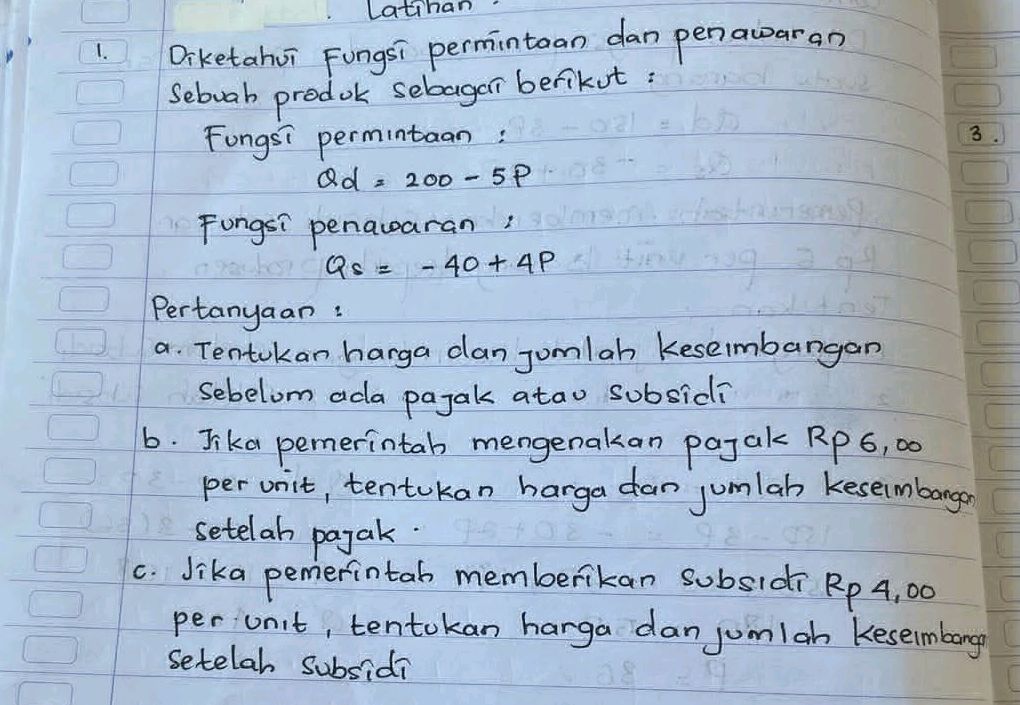 Latihan.
1. Diketahui Fungsi permintaan dan penawaran
Sebuah produk sebagai berikut :
Fungsi permintaan :
Qd = 200 - 5P
Fungsi penawaran :
Qs = - 40 + 4P
Pertanyaan :
a. Tentukan harga dan jumlah keseimbangan
Sebelum ada pajak atau subsidi
b. Jika pemerintah mengenakan pajak Rp 6,00
per unit, tentukan harga dan jumlah keseimbangan
setelah pajak.
c. Jika pemerintah memberikan subsidi Rp 4,00
per unit, tentukan harga dan jumlah keseimbanga
setelah subsidi
3.